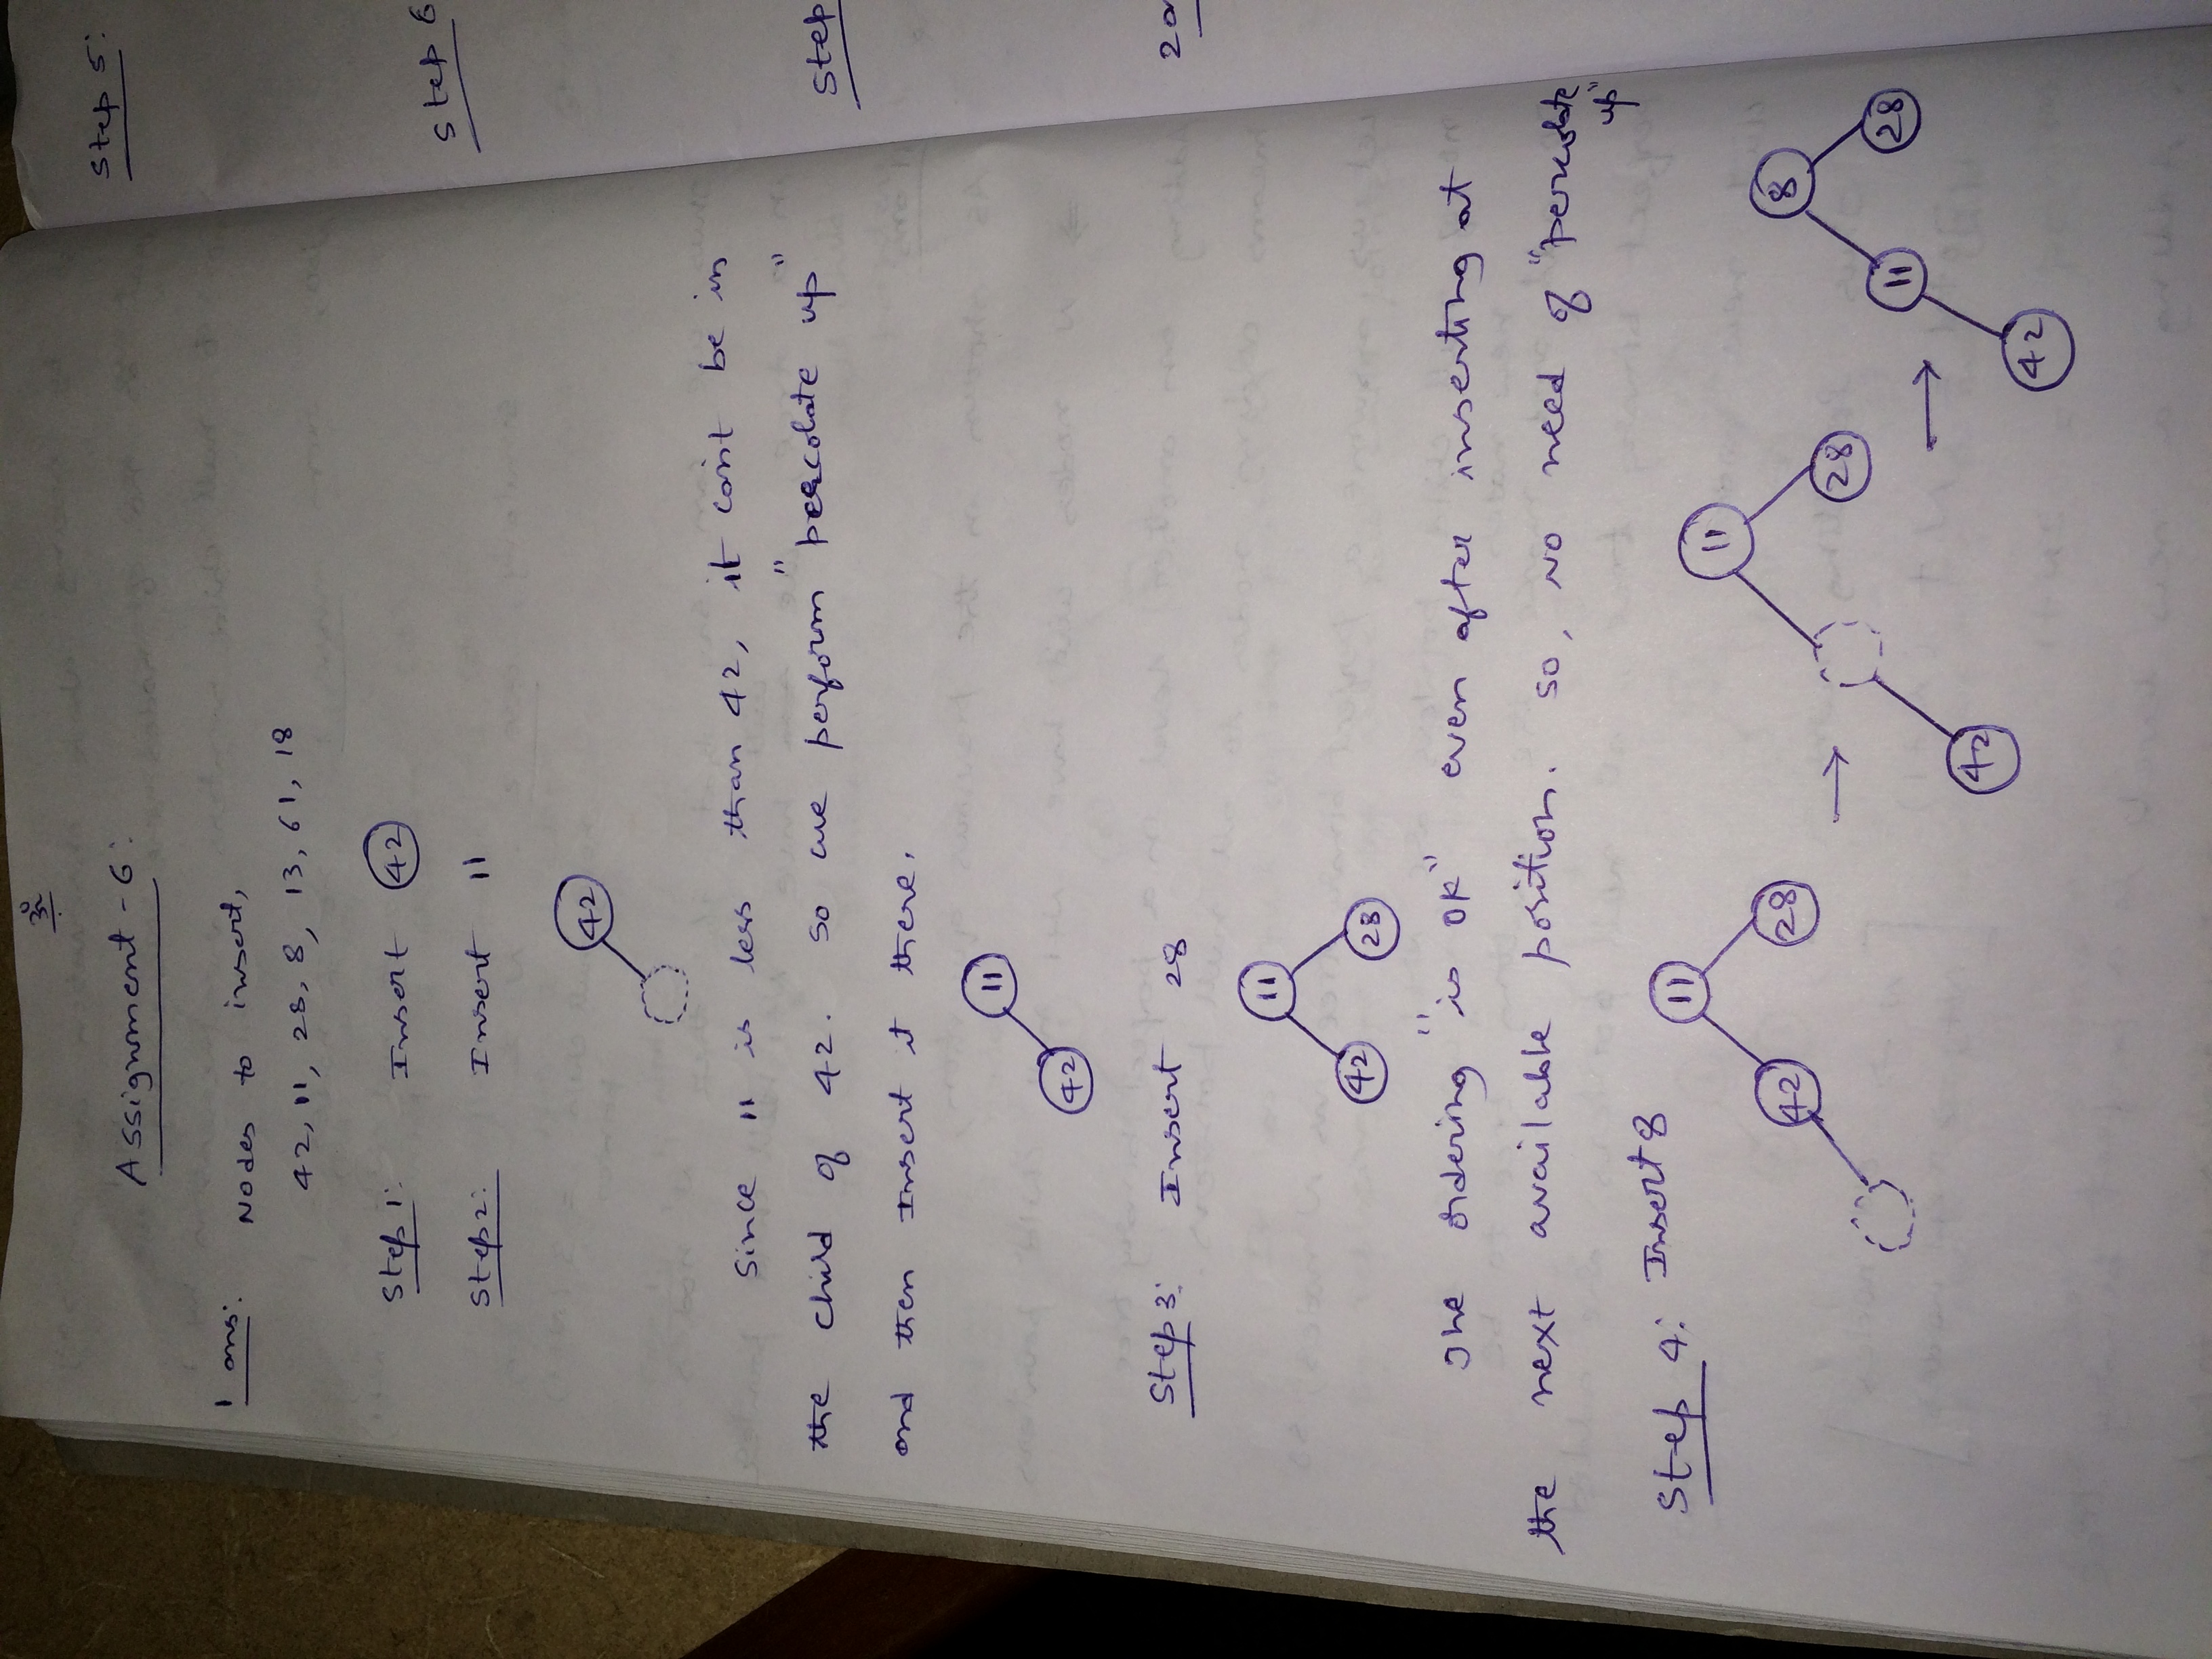 Assignment-6:
1 ans:
Nodes to insert,
42, 11, 28, 8, 13, 61, 18
Step 1: Insert 42
Step 2: Insert 11
42
Since 11 is less than 42, it can't be in
the child of 42. So we perform "percolate up"
and then Insert it there.
11
42
Step 3: Insert 28
11
42 28
The ordering "is OK" even after inserting at
the next available position. So, No need of "percolate
up"
Step 4: Insert 8
11
42 28
→
11
28
42
→
8
11 28
42
Step 5:
Step 6
Step